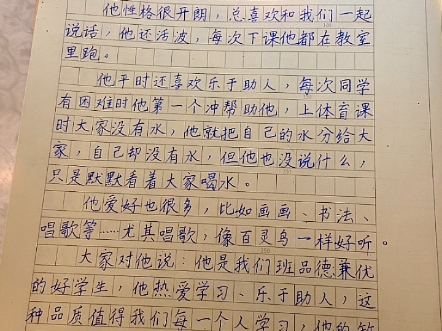 他性格很开朗，总喜欢和我们一起
说话，他还活波，每次下课他都在教室
里跑。
他平时还喜欢乐于助人，每次同学
有困难时他第一个冲帮助他，上体育课
时大家没有水，他就把自己的水分给大
家，自己却没有水，但他也没说什么，
只是默默看着大家喝水。
他爱好也很多，比如画画、书法、
唱歌等……尤其唱歌，像百灵鸟一样好听。
大家对他说：他是我们班品德兼优
的好学生，他热爱学习、乐于助人，这
种品质值得我们每一个人学习，他的